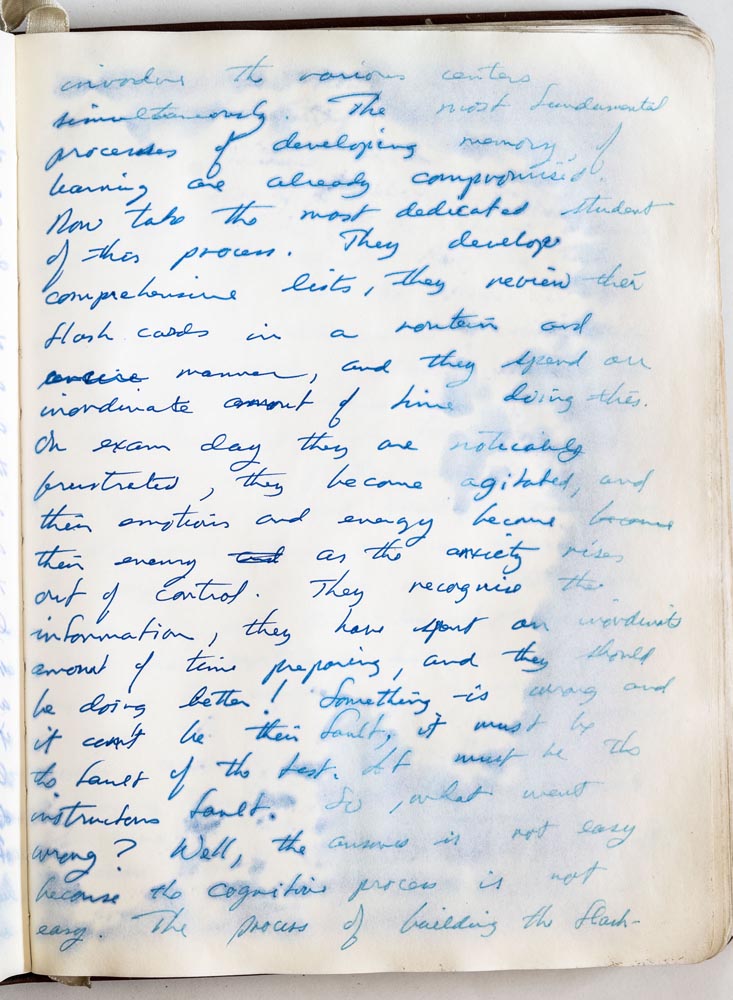 involving the various centers
simultaneously. The most fundamental
processes of developing memory, of
learning are already compromised.
Now take the most dedicated student
of this process. They develop
comprehensive lists, they review their
flash cards in a routein and
manner, and they spend an
inordinate amount of time doing this.
On exam day they are noticeably
frustrated, they become agitated, and
their emotions and energy become become
their enemy as the anxiety rises
out of control. They recognise the
information, they have spent an inordinate
amount of time preparing, and they should
be doing better! Something is wrong and
it can't be their fault, it must be
the fault of the test. It must be the
instructors fault. So, what went
wrong? Well, the answer is not easy
because the cognitive process is not
easy. The process of building the flash-